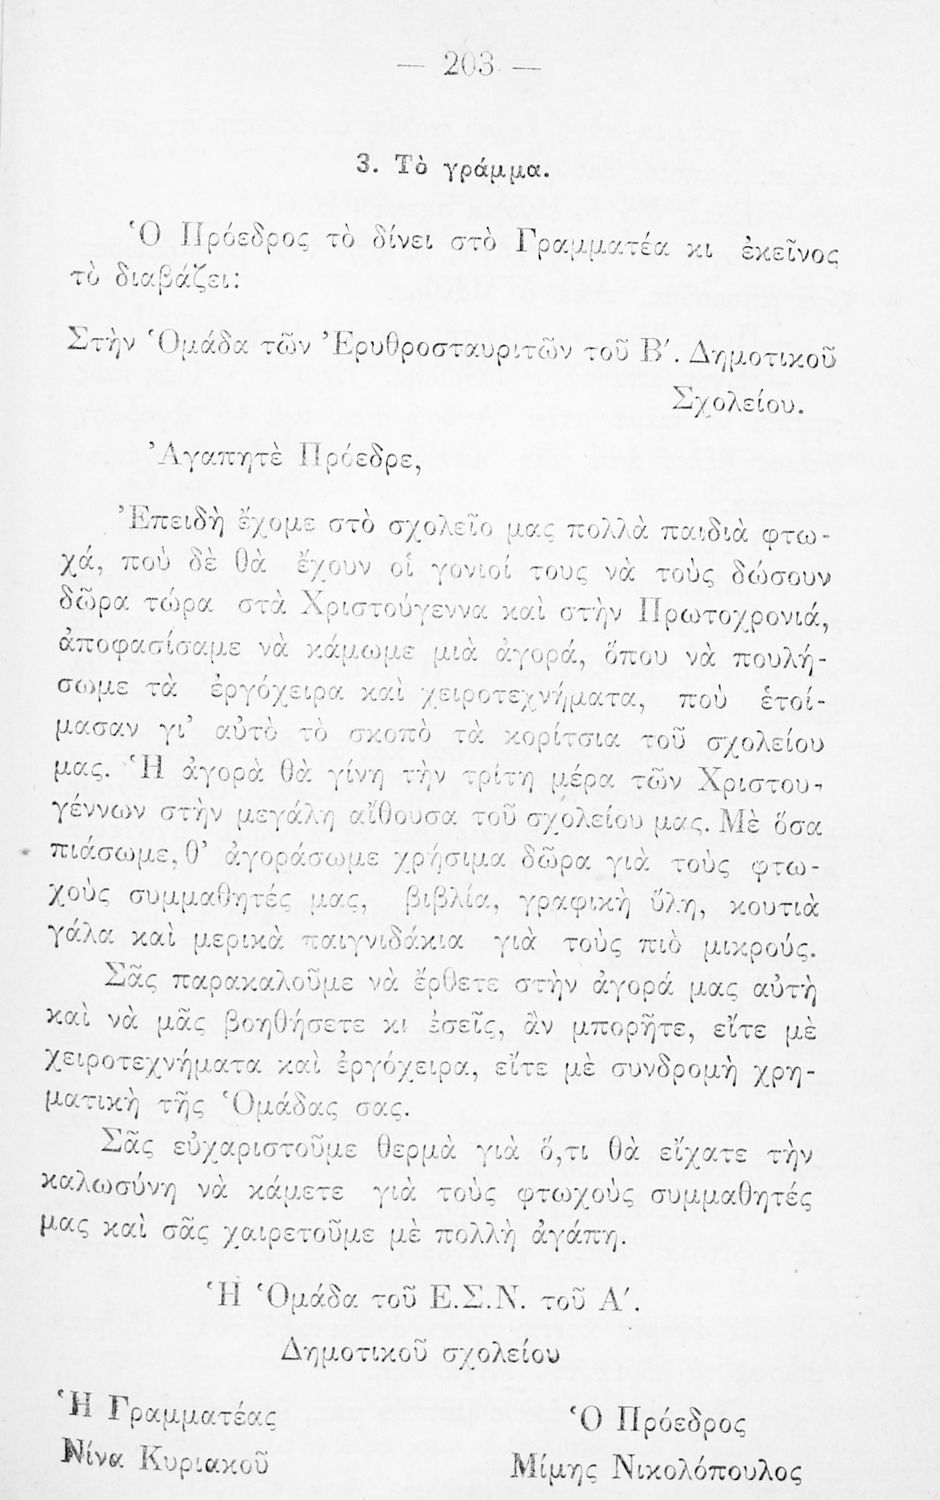 — 203 —
3. Τὸ γράμμα.
Ὁ Πρόεδρος τὸ δίνει στὸ Γραμματέα κι ἐκεῖνος
τὸ διαβάζει:
Στὴν Ὁμάδα τῶν Ἐρυθροσταυριτῶν τοῦ Β΄. Δημοτικοῦ
Σχολείου.
Ἀγαπητὲ Πρόεδρε,
Ἐπειδὴ ἔχομε στὸ σχολεῖο μας πολλὰ παιδιὰ φτω-
χά, ποὺ δὲ θὰ ἔχουν οἱ γονιοί τους νὰ τοὺς δώσουν
δῶρα τώρα στὰ Χριστούγεννα καὶ στὴν Πρωτοχρονιά,
ἀποφασίσαμε νὰ κάμωμε μιὰ ἀγορά, ὅπου νὰ πουλή-
σωμε τὰ ἐργόχειρα καὶ χειροτεχνήματα, ποὺ ἑτοί-
μασαν γι’ αὐτὸ τὸ σκοπὸ τὰ κορίτσια τοῦ σχολείου
μας. Ἡ ἀγορὰ θὰ γίνη τὴν τρίτη μέρα τῶν Χριστου-
γέννων στὴν μεγάλη αἴθουσα τοῦ σχολείου μας. Μὲ ὅσα
πιάσωμε, θ’ ἀγοράσωμε χρήσιμα δῶρα γιὰ τοὺς φτω-
χοὺς συμμαθητές μας, βιβλία, γραφικὴ ὕλη, κουτιὰ
γάλα καὶ μερικὰ παιγνιδάκια γιὰ τοὺς πιὸ μικρούς.
Σᾶς παρακαλοῦμε νὰ ἔρθετε στὴν ἀγορά μας αὐτὴ
καὶ νὰ μᾶς βοηθήσετε κι ἐσεῖς, ἂν μπορῆτε, εἴτε μὲ
χειροτεχνήματα καὶ ἐργόχειρα, εἴτε μὲ συνδρομὴ χρη-
ματικὴ τῆς Ὁμάδας σας.
Σᾶς εὐχαριστοῦμε θερμὰ γιὰ ὅ,τι θὰ εἴχατε τὴν
καλωσύνη νὰ κάμετε γιὰ τοὺς φτωχοὺς συμμαθητές
μας καὶ σᾶς χαιρετοῦμε μὲ πολλὴ ἀγάπη.
Ἡ Ὁμάδα τοῦ Ε.Σ.Ν. τοῦ Α΄.
Δημοτικοῦ σχολείου
Ἡ Γραμματέας
Ὁ Πρόεδρος
Νίνα Κυριακοῦ
Μίμης Νικολόπουλος